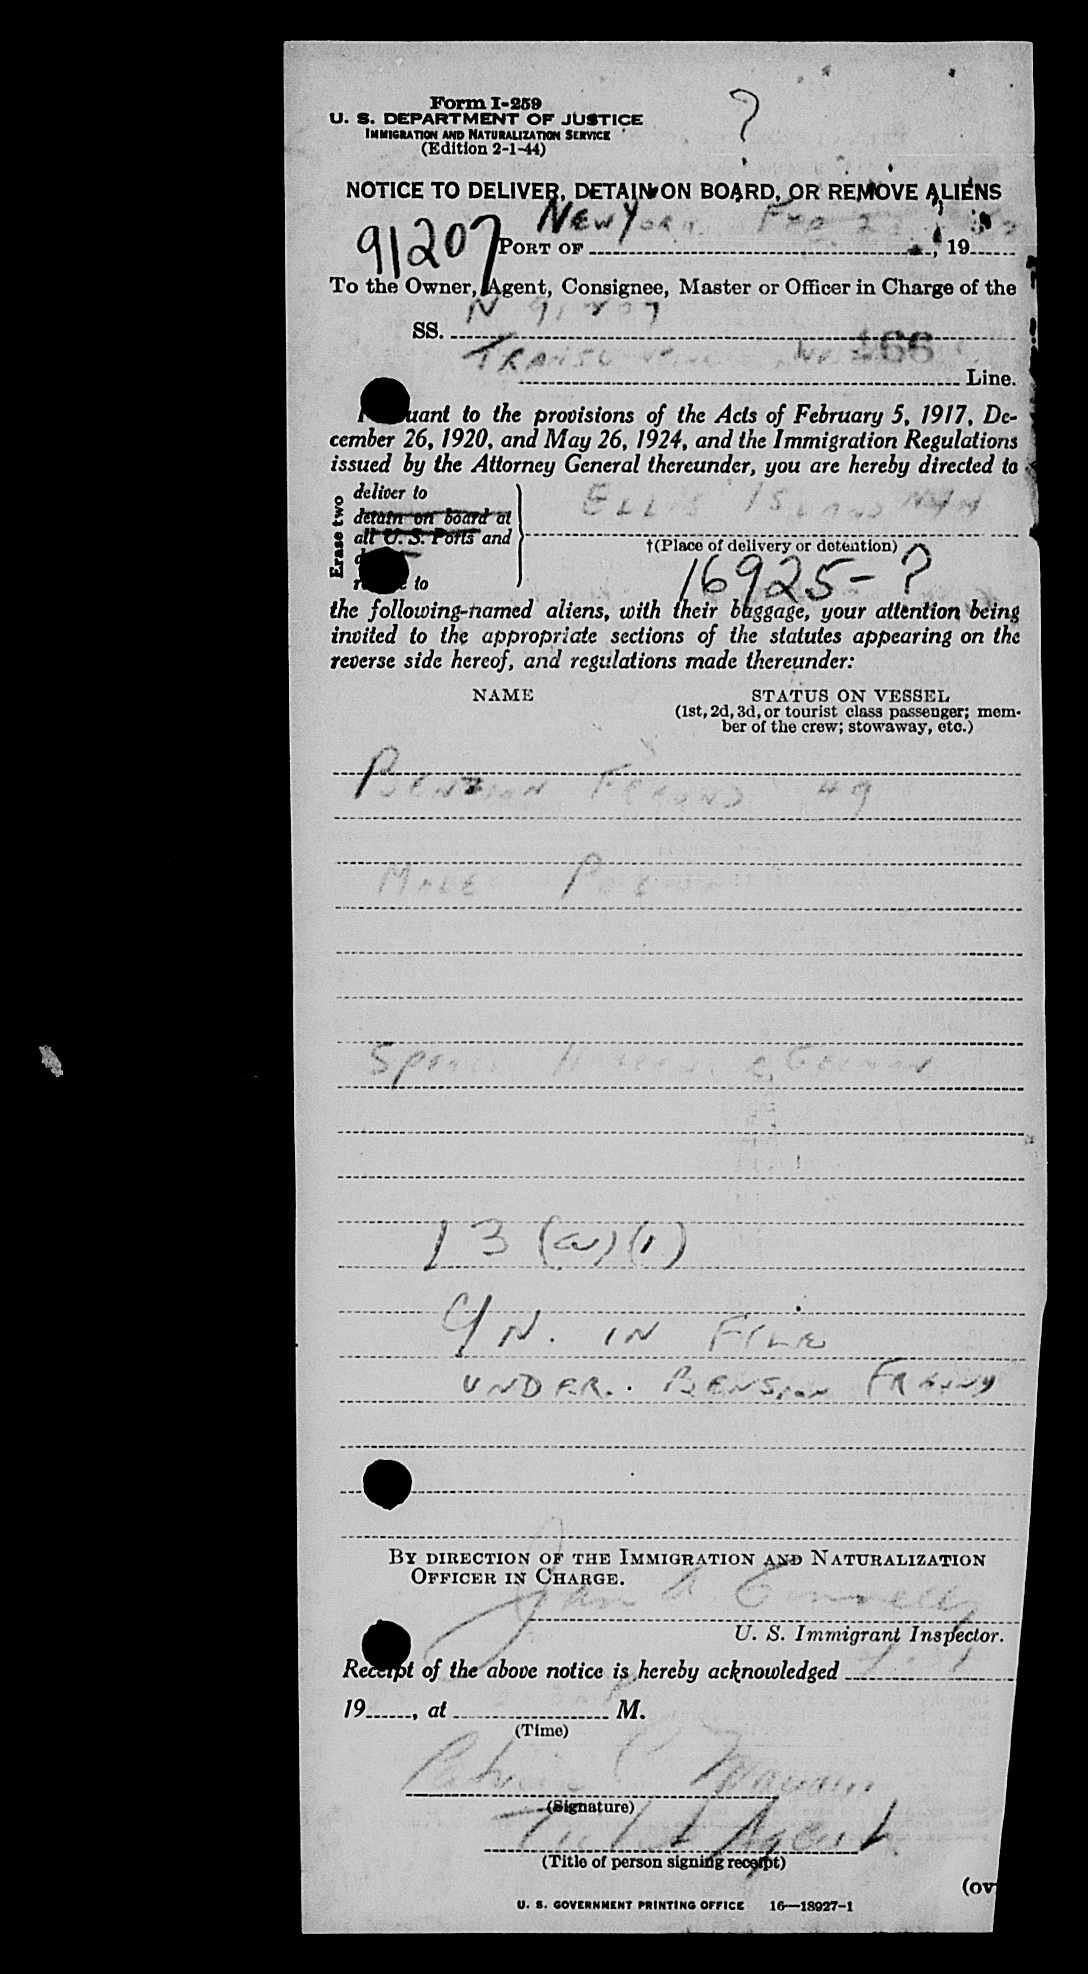 ?
Form I-259
U. S. DEPARTMENT OF JUSTICE
IMMIGRATION AND NATURALIZATION SERVICE
(Edition 2-1-44)
NOTICE TO DELIVER, DETAIN ON BOARD, OR REMOVE ALIENS
91207
NEW YORK
PORT OF , 19
To the Owner, Agent, Consignee, Master or Officer in Charge of the
N 91207
SS.
166
Line.
uant to the provisions of the Acts of February 5, 1917, De-
cember 26, 1920, and May 26, 1924, and the Immigration Regulations
issued by the Attorney General thereunder, you are hereby directed to
Erase two
deliver to
ELLIS ISLAND NYH
detain on board at
all U. S. Ports and
†(Place of delivery or detention)
to
16925-?
the following-named aliens, with their baggage, your attention being
invited to the appropriate sections of the statutes appearing on the
reverse side hereof, and regulations made thereunder:
NAME STATUS ON VESSEL
(1st, 2d, 3d, or tourist class passenger; mem-
ber of the crew; stowaway, etc.)
BENZION 49
MALE
13 (a)(1)
IN FILE
UNDER. BENSION
BY DIRECTION OF THE IMMIGRATION AND NATURALIZATION
OFFICER IN CHARGE.
U. S. Immigrant Inspector.
Receipt of the above notice is hereby acknowledged
19 , at M.
(Time)
(Signature)
Ticket Agent
(Title of person signing receipt)
(ov
U. S. GOVERNMENT PRINTING OFFICE 16—18927-1